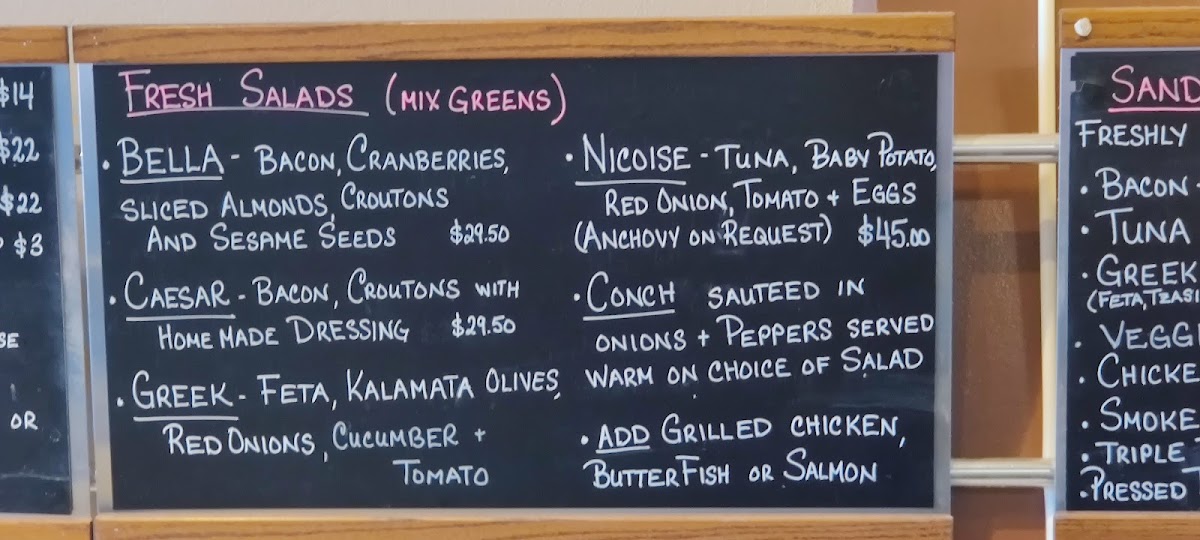 $14
$22
$22
$3
OR
FRESH SALADS (MIX GREENS)
• BELLA - BACON, CRANBERRIES,
SLICED ALMONDS, CROUTONS
AND SESAME SEEDS $29.50
• CAESAR - BACON, CROUTONS WITH
HOME MADE DRESSING $29.50
• GREEK - FETA, KALAMATA OLIVES,
RED ONIONS, CUCUMBER +
TOMATO
• NICOISE - TUNA, BABY POTATO,
RED ONION, TOMATO + EGGS
(ANCHOVY ON REQUEST) $45.00
• CONCH SAUTEED IN
ONIONS + PEPPERS SERVED
WARM ON CHOICE OF SALAD
• ADD GRILLED CHICKEN,
BUTTERFISH OR SALMON
SAND
FRESHLY
• BACON
• TUNA
• GREEK
(FETA, TZASI
• VEGGI
• CHICKE
• SMOKE
• TRIPLE
• PRESSED